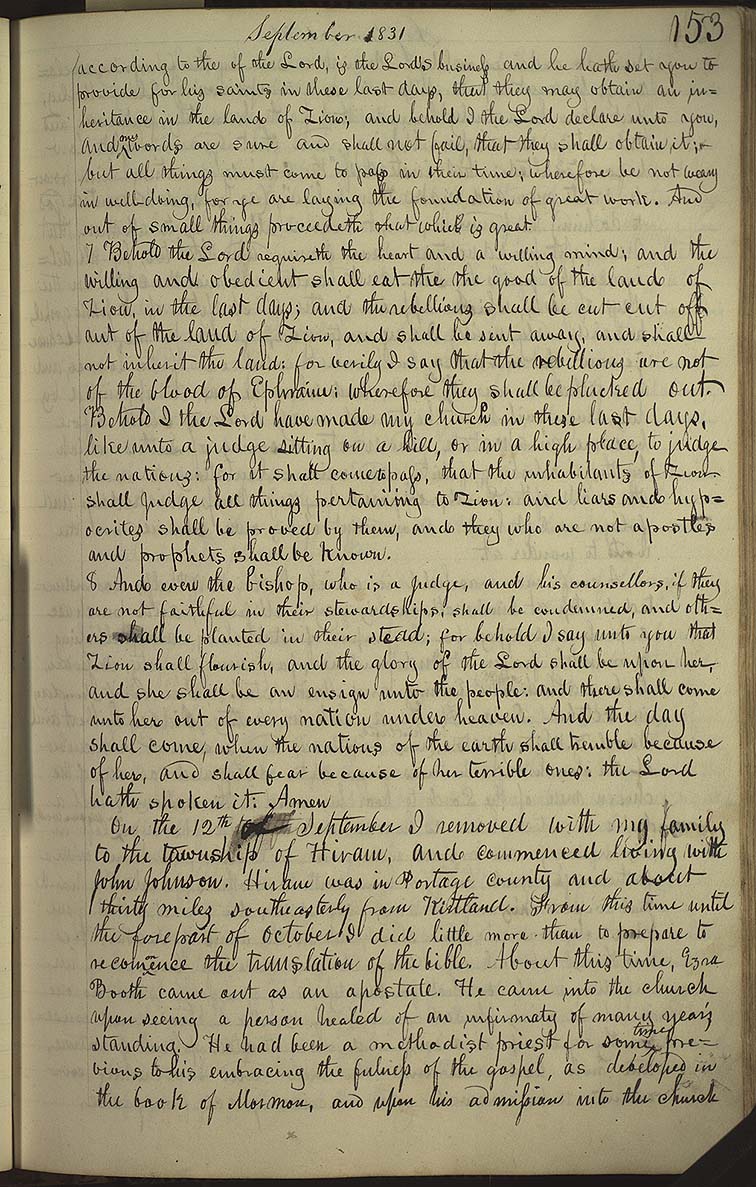 September 1831
153
according to the of the Lord, is the Lord's business and he hath set you to
provide for his saints in these last days, that they may obtain an in=
heritance in the land of Zion; and behold I the Lord declare unto you,
and my words are sure and shall not fail, that they shall obtain it;
but all things must come to pass in their time; wherefore be not weary
in well-doing, for ye are laying the foundation of great work. And
out of small things proceedeth that which is great.
7 Behold the Lord requireth the heart and a willing mind; and the
willing and obedient shall eat the the good of the land of
Zion, in the last days; and the rebellious shall be cut cut off
out of the land of Zion, and shall be sent away, and shall
not inherit the land: for verily I say that the rebellious are not
of the blood of Ephraim: wherefore they shall be plucked out.
Behold I the Lord have made my church in these last days,
like unto a judge sitting on a hill, or in a high place, to judge
the nations: for it shall come to pass, that the inhabitants of Zion
shall judge all things pertaining to Zion: and liars and hyp=
ocrites shall be proved by them, and they who are not apostles
and prophets shall be known.
8 And even the bishop, who is a judge, and his counsellors, if they
are not faithful in their stewardships, shall be condemned, and oth=
ers shall be planted in their stead; for behold I say unto you that
Zion shall flourish, and the glory of the Lord shall be upon her,
and she shall be an ensign unto the people: and there shall come
unto her out of every nation under heaven. And the day
shall come, when the nations of the earth shall tremble because
of her, and shall fear because of her terrible ones: the Lord
hath spoken it: Amen
On the 12th of September I removed with my family
to the township of Hiram, and commenced living with
John Johnson. Hiram was in Portage county and about
thirty miles southeasterly from Kirtland. From this time until
the forepart of October I did little more than to prepare to
recomence the translation of the bible. About this time, Ezra
Booth came out as an apostate. He came into the church
upon seeing a person healed of an infirmaty of many year's
standing. He had been a methodist priest for some time pre=
vious to his embracing the fulness of the gospel, as developed in
the book of Mormon, and upon his admission into the church